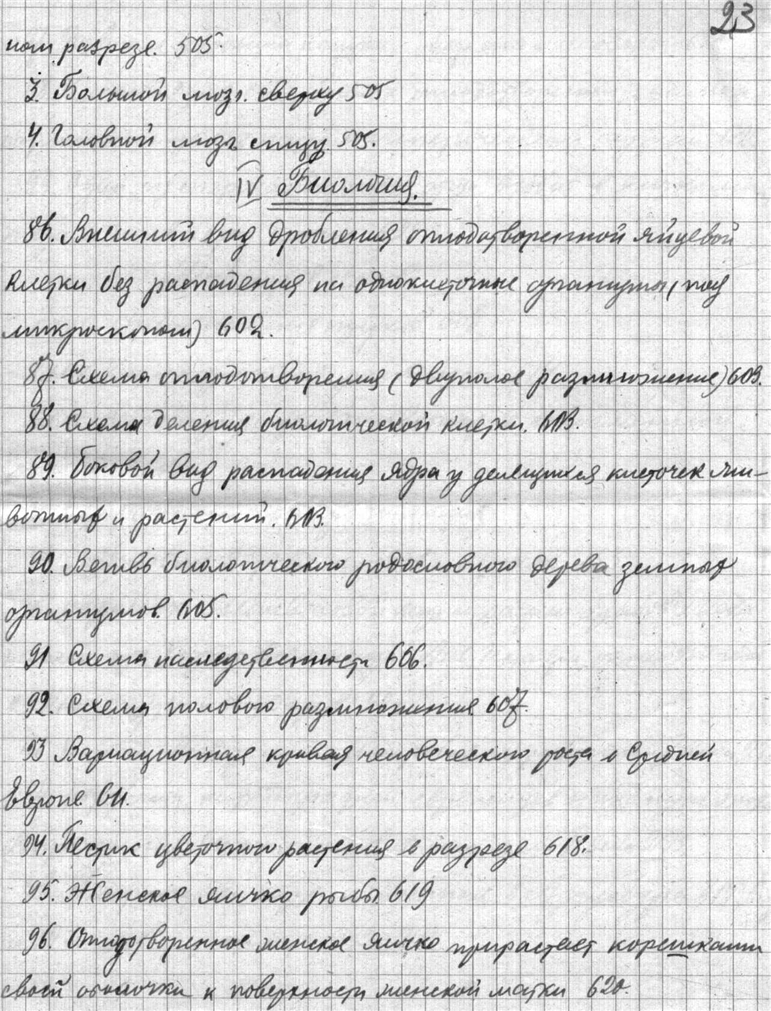 23
ном разрезе. 505.
3. Большой мозг. сверху 505
4. Головной мозг снизу 505.
IV Биология.
86. Внешний вид дробления оплодотворенной яйцевой
клетки без распадения на одноклеточные организмы (под
микроскопом) 602.
87. Схема оплодотворения (двуполое размножение) 603.
88. Схема деления биологической клетки. 603.
89. Боковой вид распадения ядра у делящихся клеточек жи-
вотных и растений. 603.
90. Ветвь биологического родословного дерева земных
организмов. 605.
91 Схема наследственности 606.
92. Схема полового размножения 607.
93 Вариационная кривая человеческого роста в Средней
Европе. 611.
94. Пестик цветочного растения в разрезе 618.
95. Женское яичко рыбы 619
96. Оплодотворенное женское яичко прирастает корешками
своей оболочки к поверхности женской матки 620.